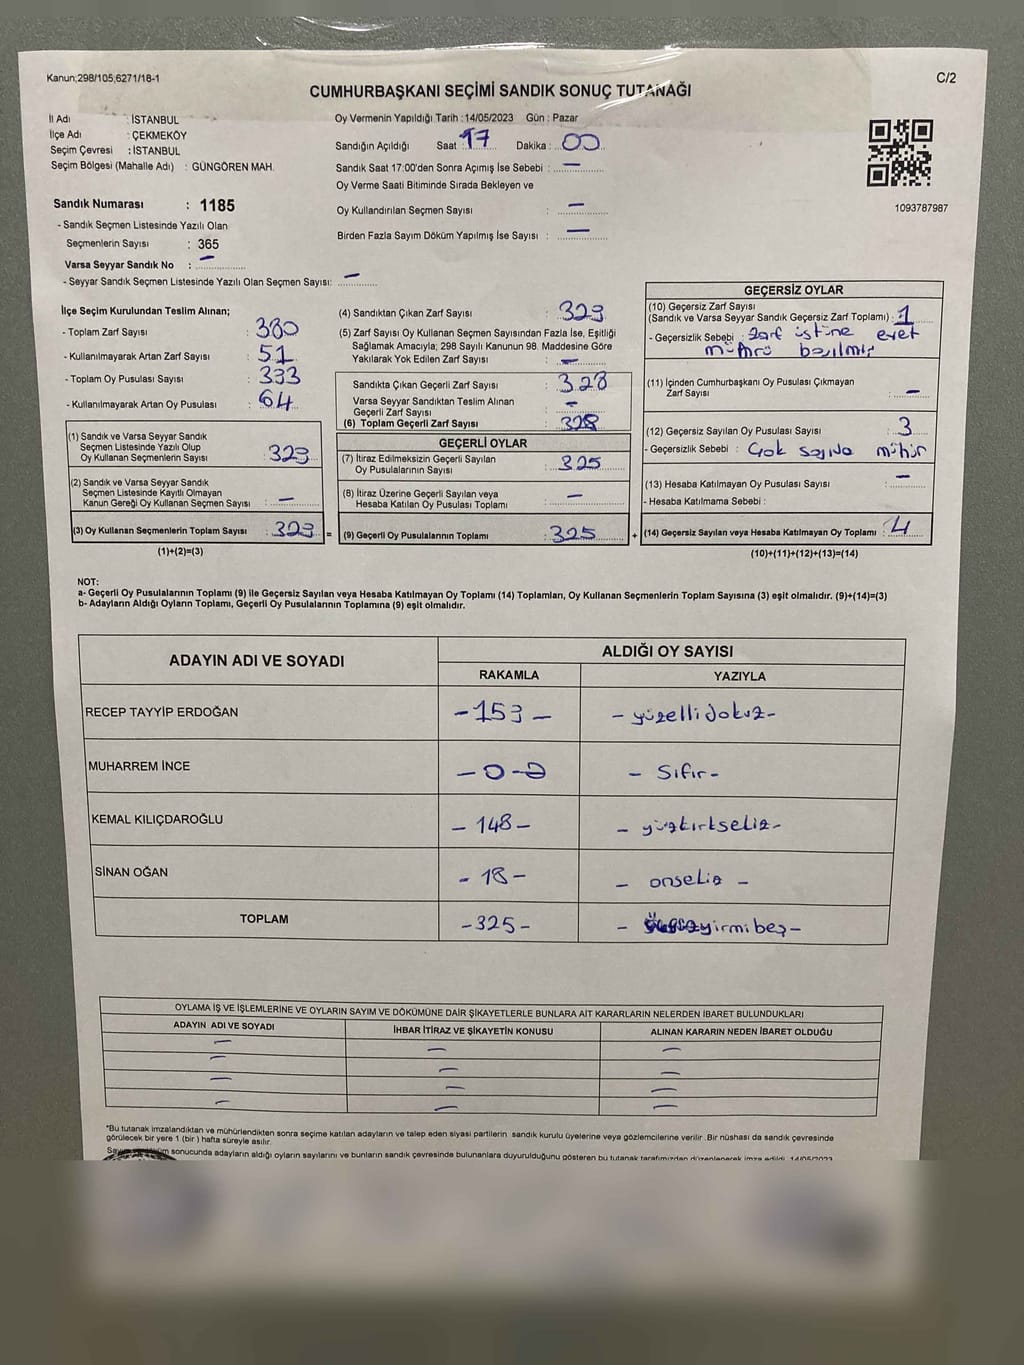 Kanun;298/105;6271/18-1
C/2
CUMHURBAŞKANI SEÇİMİ SANDIK SONUÇ TUTANAĞI
İl Adı : İSTANBUL
İlçe Adı : ÇEKMEKÖY
Seçim Çevresi : İSTANBUL
Seçim Bölgesi (Mahalle Adı) : GÜNGÖREN MAH.
Oy Vermenin Yapıldığı Tarih : 14/05/2023 Gün : Pazar
Sandığın Açıldığı Saat : 17 Dakika : 00
Sandık Saat 17:00'den Sonra Açımış İse Sebebi : —
Oy Verme Saati Bitiminde Sırada Bekleyen ve
Oy Kullandırılan Seçmen Sayısı : —
Birden Fazla Sayım Döküm Yapılmış İse Sayısı : —
1093787987
Sandık Numarası : 1185
- Sandık Seçmen Listesinde Yazılı Olan
Seçmenlerin Sayısı : 365
Varsa Seyyar Sandık No : —
- Seyyar Sandık Seçmen Listesinde Yazılı Olan Seçmen Sayısı: —
İlçe Seçim Kurulundan Teslim Alınan;
- Toplam Zarf Sayısı : 380
- Kullanılmayarak Artan Zarf Sayısı : 51
- Toplam Oy Pusulası Sayısı : 393
- Kullanılmayarak Artan Oy Pusulası : 64
(1) Sandık ve Varsa Seyyar Sandık
Seçmen Listesinde Yazılı Olup
Oy Kullanan Seçmenlerin Sayısı : 329
(2) Sandık ve Varsa Seyyar Sandık
Seçmen Listesinde Kayıtlı Olmayan
Kanun Gereği Oy Kullanan Seçmen Sayısı : —
(3) Oy Kullanan Seçmenlerin Toplam Sayısı : 329 =
(1)+(2)=(3)
(4) Sandıktan Çıkan Zarf Sayısı : 329
(5) Zarf Sayısı Oy Kullanan Seçmen Sayısından Fazla İse, Eşitliği
Sağlamak Amacıyla; 298 Sayılı Kanunun 98. Maddesine Göre
Yakılarak Yok Edilen Zarf Sayısı : —
Sandıkta Çıkan Geçerli Zarf Sayısı : 328
Varsa Seyyar Sandıktan Teslim Alınan
Geçerli Zarf Sayısı : —
(6) Toplam Geçerli Zarf Sayısı : 328
GEÇERLİ OYLAR
(7) İtiraz Edilmeksizin Geçerli Sayılan
Oy Pusulalarının Sayısı : 325
(8) İtiraz Üzerine Geçerli Sayılan veya
Hesaba Katılan Oy Pusulası Toplamı : —
(9) Geçerli Oy Pusulalarının Toplamı : 325 +
GEÇERSİZ OYLAR
(10) Geçersiz Zarf Sayısı
(Sandık ve Varsa Seyyar Sandık Geçersiz Zarf Toplamı) : 1
- Geçersizlik Sebebi : zarf üstüne evet
mührü basılmış
(11) İçinden Cumhurbaşkanı Oy Pusulası Çıkmayan
Zarf Sayısı : —
(12) Geçersiz Sayılan Oy Pusulası Sayısı : 3
- Geçersizlik Sebebi : Çok sayıda mühür
(13) Hesaba Katılmayan Oy Pusulası Sayısı : —
- Hesaba Katılmama Sebebi :
(14) Geçersiz Sayılan veya Hesaba Katılmayan Oy Toplamı : 4
(10)+(11)+(12)+(13)=(14)
NOT:
a- Geçerli Oy Pusulalarının Toplamı (9) ile Geçersiz Sayılan veya Hesaba Katılmayan Oy Toplamı (14) Toplamları, Oy Kullanan Seçmenlerin Toplam Sayısına (3) eşit olmalıdır. (9)+(14)=(3)
b- Adayların Aldığı Oyların Toplamı, Geçerli Oy Pusulalarının Toplamına (9) eşit olmalıdır.
ADAYIN ADI VE SOYADI ALDIĞI OY SAYISI
RAKAMLA YAZIYLA
RECEP TAYYİP ERDOĞAN -159- -yüzellidokuz-
MUHARREM İNCE -0- - Sıfır-
KEMAL KILIÇDAROĞLU -148- - yüzkırksekiz-
SİNAN OĞAN -18- - onsekiz -
TOPLAM -325- - yirmibeş-
OYLAMA İŞ VE İŞLEMLERİNE VE OYLARIN SAYIM VE DÖKÜMÜNE DAİR ŞİKAYETLERLE BUNLARA AİT KARARLARIN NELERDEN İBARET BULUNDUKLARI
ADAYIN ADI VE SOYADI İHBAR İTİRAZ VE ŞİKAYETİN KONUSU ALINAN KARARIN NEDEN İBARET OLDUĞU
— — —
— — —
— — —
— — —
*Bu tutanak imzalandıktan ve mühürlendikten sonra seçime katılan adayların ve talep eden siyasi partilerin sandık kurulu üyelerine veya gözlemcilerine verilir .Bir nüshası da sandık çevresinde
görülecek bir yere 1 (bir ) hafta süreyle asılır.
sonucunda adayların aldığı oyların sayılarını ve bunların sandık çevresinde bulunanlara duyurulduğunu gösteren bu tutanak tarafımızdan düzenlenerek imza edildi. 14/05/2023